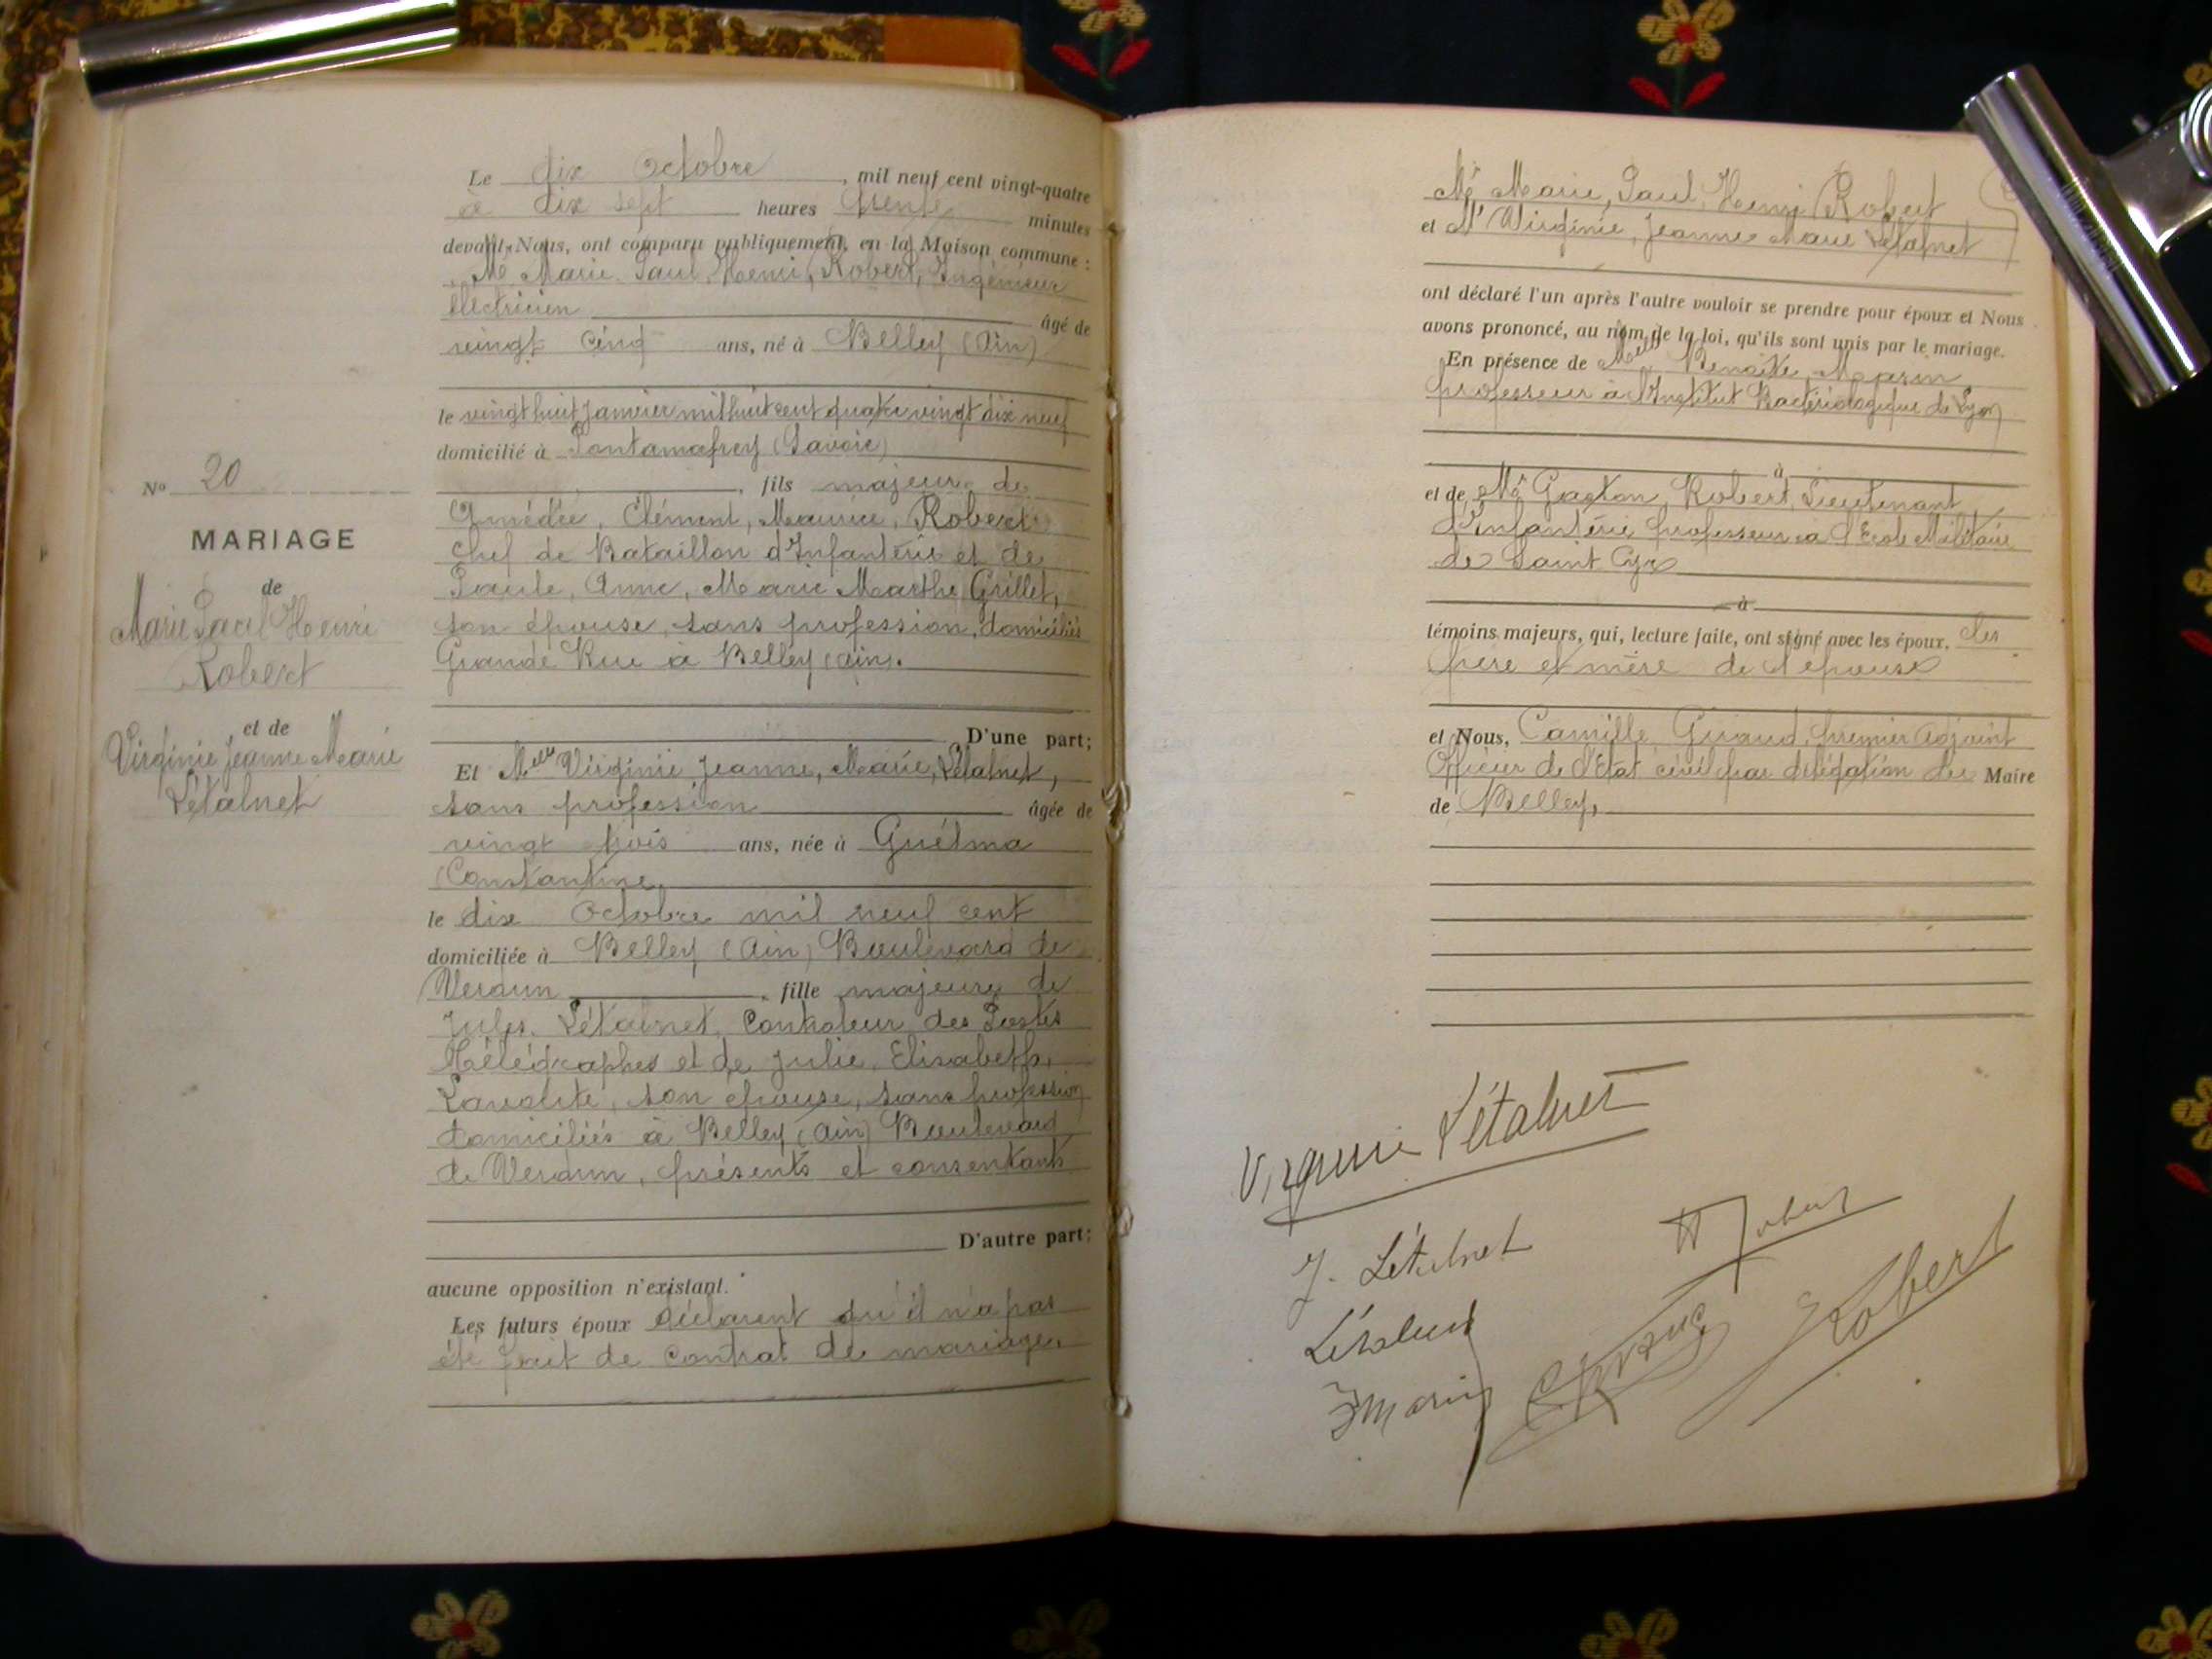 Le dix Octobre, mil neuf cent vingt-quatre
à dix sept heures trente minutes
devant Nous, ont comparu publiquement, en la Maison commune :
Mr Marie Paul, Henri, Robert, Ingénieur
électricien âgé de
vingt cinq ans, né à Belley (Ain)
le vingt huit janvier mil huit cent quatre vingt dix neuf
domicilié à Pontamafrey (Savoie)
, fils majeur de
Amédée, Clément, Maurice, Robert
Chef de Bataillon d'Infanterie et de
Paule, Anne, Marie Marthe Grillet,
son épouse, sans profession, domiciliés
Grande Rue à Belley (Ain).
D'une part;
Et Melle Virginie Jeanne, Marie, Létalnet,
sans profession âgée de
vingt trois ans, née à Guélma
(Constantine)
le dix Octobre mil neuf cent
domiciliée à Belley (Ain) Boulevard de
Verdun, fille majeure de
Jules Létalnet, Controleur des Postes
Télégraphes et de Julie, Elisabeth,
son épouse, sans profession
domiciliés à Belley (Ain) Boulevard
de Verdun, présents et consentants
D'autre part;
aucune opposition n'existant.
Les futurs époux déclarent qu'il n'a pas
été fait de contrat de mariage.
No 20
MARIAGE
de
Marie Paul Henri
Robert
et de
Virginie Jeanne Marie
Létalnet
Mr Marie, Paul, Henri Robert
et Mle Virginie, Jeanne Marie Létalnet
ont déclaré l'un après l'autre vouloir se prendre pour époux et Nous
avons prononcé, au nom de la loi, qu'ils sont unis par le mariage.
En présence de Melle Benoite Marin
professeur à l'Institut Bactériologique de Lyon
à
et de Mr Gaston Robert, Lieutenant
d'Infanterie professeur à l'Ecole Militaire
de Saint Cyr
à
témoins majeurs, qui, lecture faite, ont signé avec les époux, les
père et mère de l'épouse
et Nous, Camille Giraud, premier adjoint
Officier de l'Etat civil par délégation du Maire
de Belley,
Virginie Létalnet
J. Létalnet
H Robert
Létalnet
Marin
G Robert